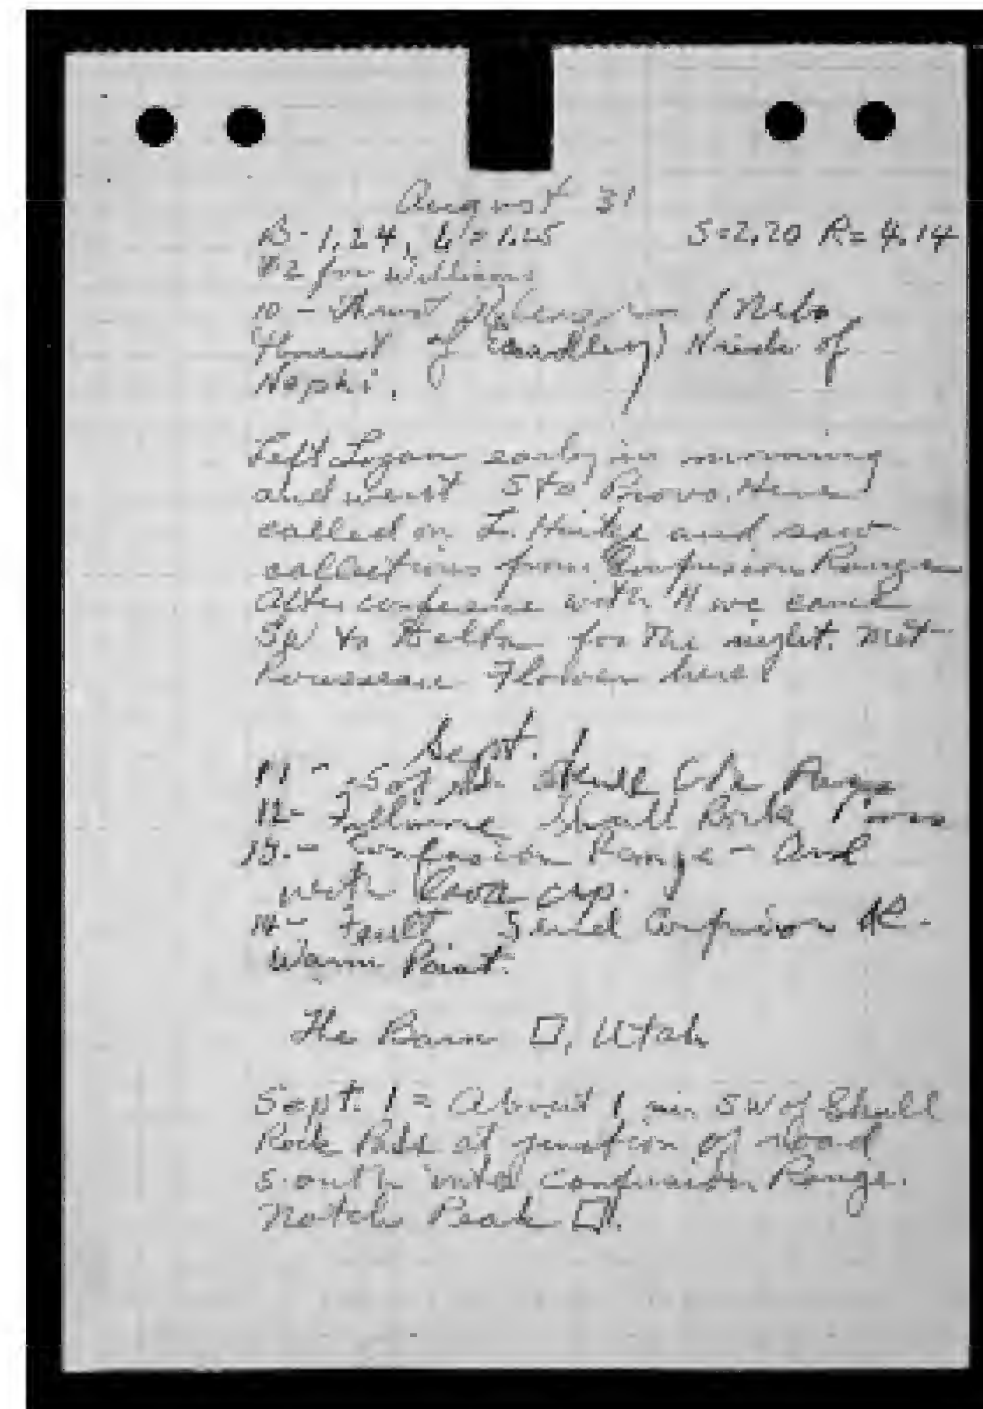 August 31
B-1.24, L=1.25 S=2.20 R=4.14
#2 for Williams
10 - Thrust (Nebo
Thrust of Eardley) N side of
Nephi.
Left Logan early in morning
and went S to Provo. Here
called on L. Hintze and saw
collections from Confusion Range
After conference with H we came
SW to Delta for the night. Met
Rousseau Flower here.
Sept. 1
11 - Skull Rk Pass
12 - Skull Rock Pass
13. - Confusion Range - Ord
with lava cap.
14 - Fault S end Confusion R.
Warm Point.
The Barn □, Utah
Sept. 1 = About 1 mi. SW of Skull
Rock Pass at junction of road
south into Confusion Range.
Notch Peak □.